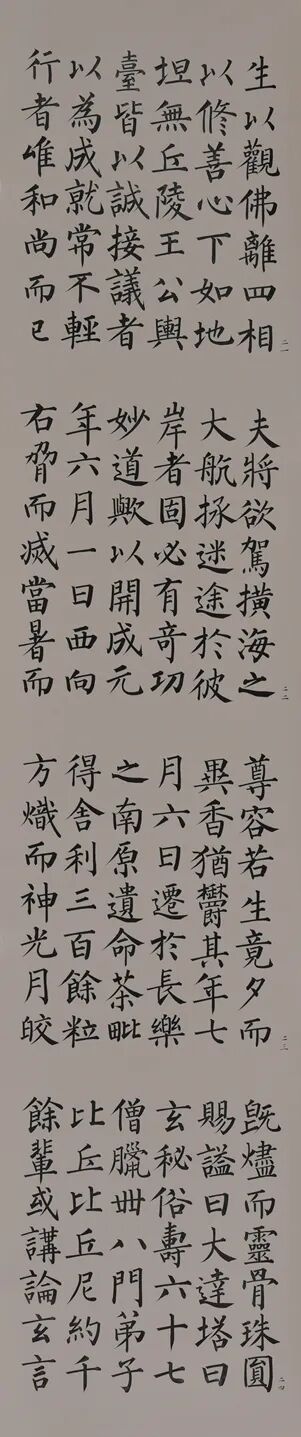 生以觀佛離四相
以修善心下如地
坦無丘陵王公輿
臺皆以誠接議者
以為成就常不輕
行者唯和尚而已
二一
夫將欲駕橫海之
大航拯迷途於彼
岸者固必有奇功
妙道歟以開成元
年六月一日西向
右脅而滅當暑而
二二
尊容若生竟夕而
異香猶鬱其年七
月六日遷於長樂
之南原遺命荼毗
得舍利三百餘粒
方熾而神光月皎
二三
既燼而靈骨珠圓
賜謚曰大達塔曰
玄秘俗壽六十七
僧臘卌八門弟子
比丘比丘尼約千
餘輩或講論玄言
二四